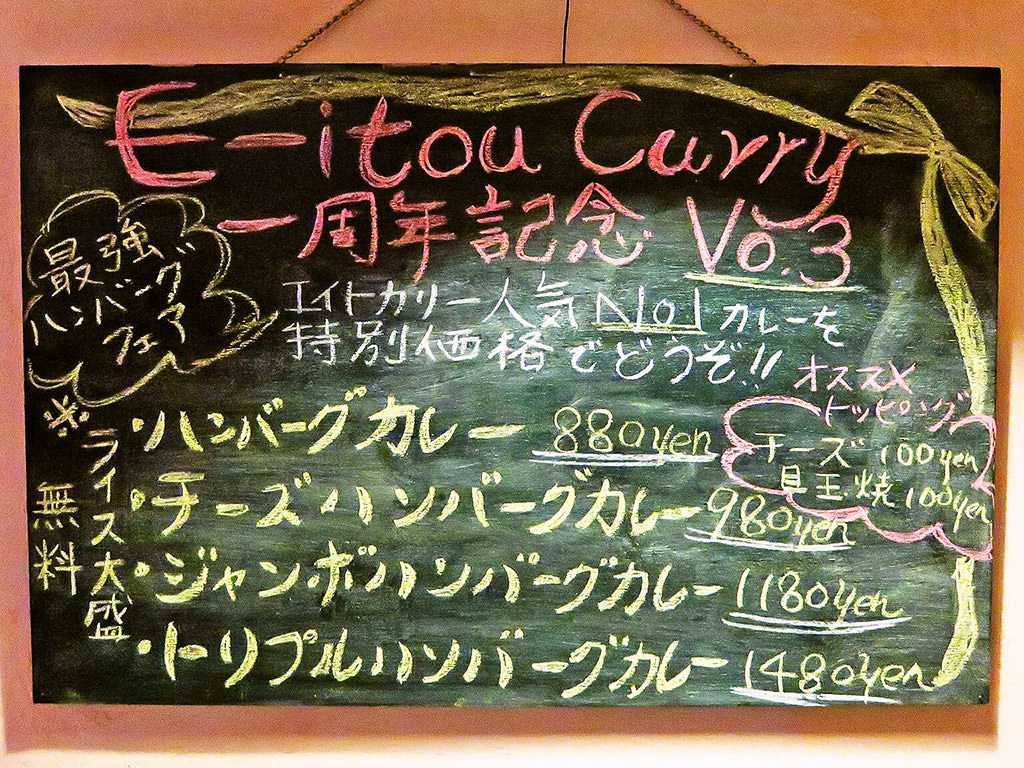 E-itou Curry
一周年記念 Vo.3
最強
ハンバーグ
フェア
エイトカリー人気No1カレーを
特別価格でどうぞ!!
オススメ
トッピング
チーズ 100yen
目玉焼 100yen
※ライス大盛
無料
・ハンバーグカレー 880yen
・チーズハンバーグカレー 980yen
・ジャンボハンバーグカレー 1180yen
・トリプルハンバーグカレー 1480yen